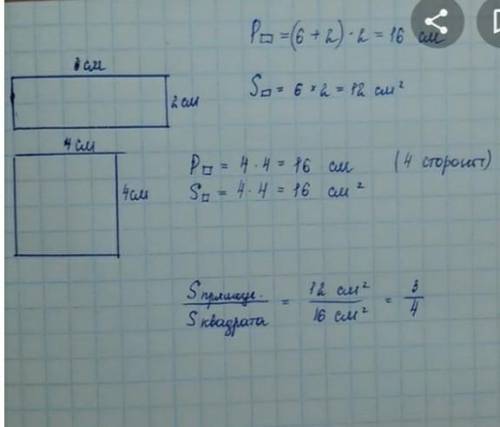 P▭ = (6 + 2) · 2 = 16 см
см
2 см
S▭ = 6 × 2 = 12 см²
4 см
4 см
P□ = 4 · 4 = 16 см (4 сторонт)
S□ = 4 · 4 = 16 см²
S прямоуг. / S квадрата = 12 см² / 16 см² = 3 / 4